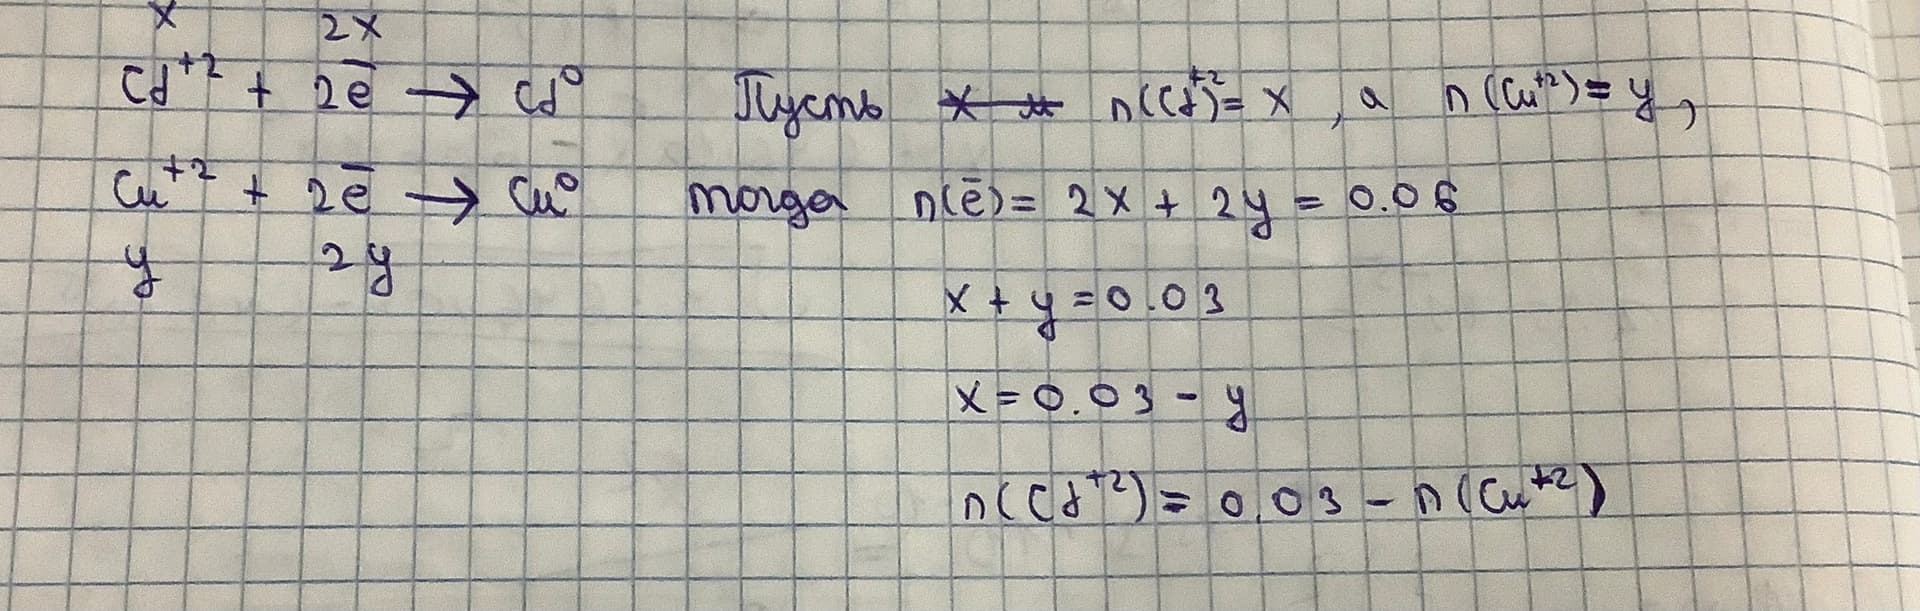 x 2x
Cd⁺² + 2ē → Cd⁰ Пусть n(Cd⁺²) = x, а n(Cu⁺²) = y,
Cu⁺² + 2ē → Cu⁰ тогда n(ē) = 2x + 2y = 0.06
y 2y
x + y = 0.03
x = 0.03 - y
n(Cd⁺²) = 0.03 - n(Cu⁺²)